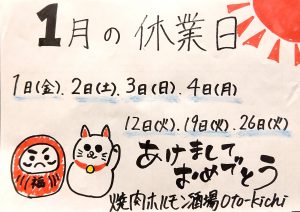 1月の休業日
1日(金).2日(土).3日(日).4日(月)
12日(火).19日(火).26日(火)
あけまして
おめでとう
福
焼肉ホルモン酒場Oto-kichi